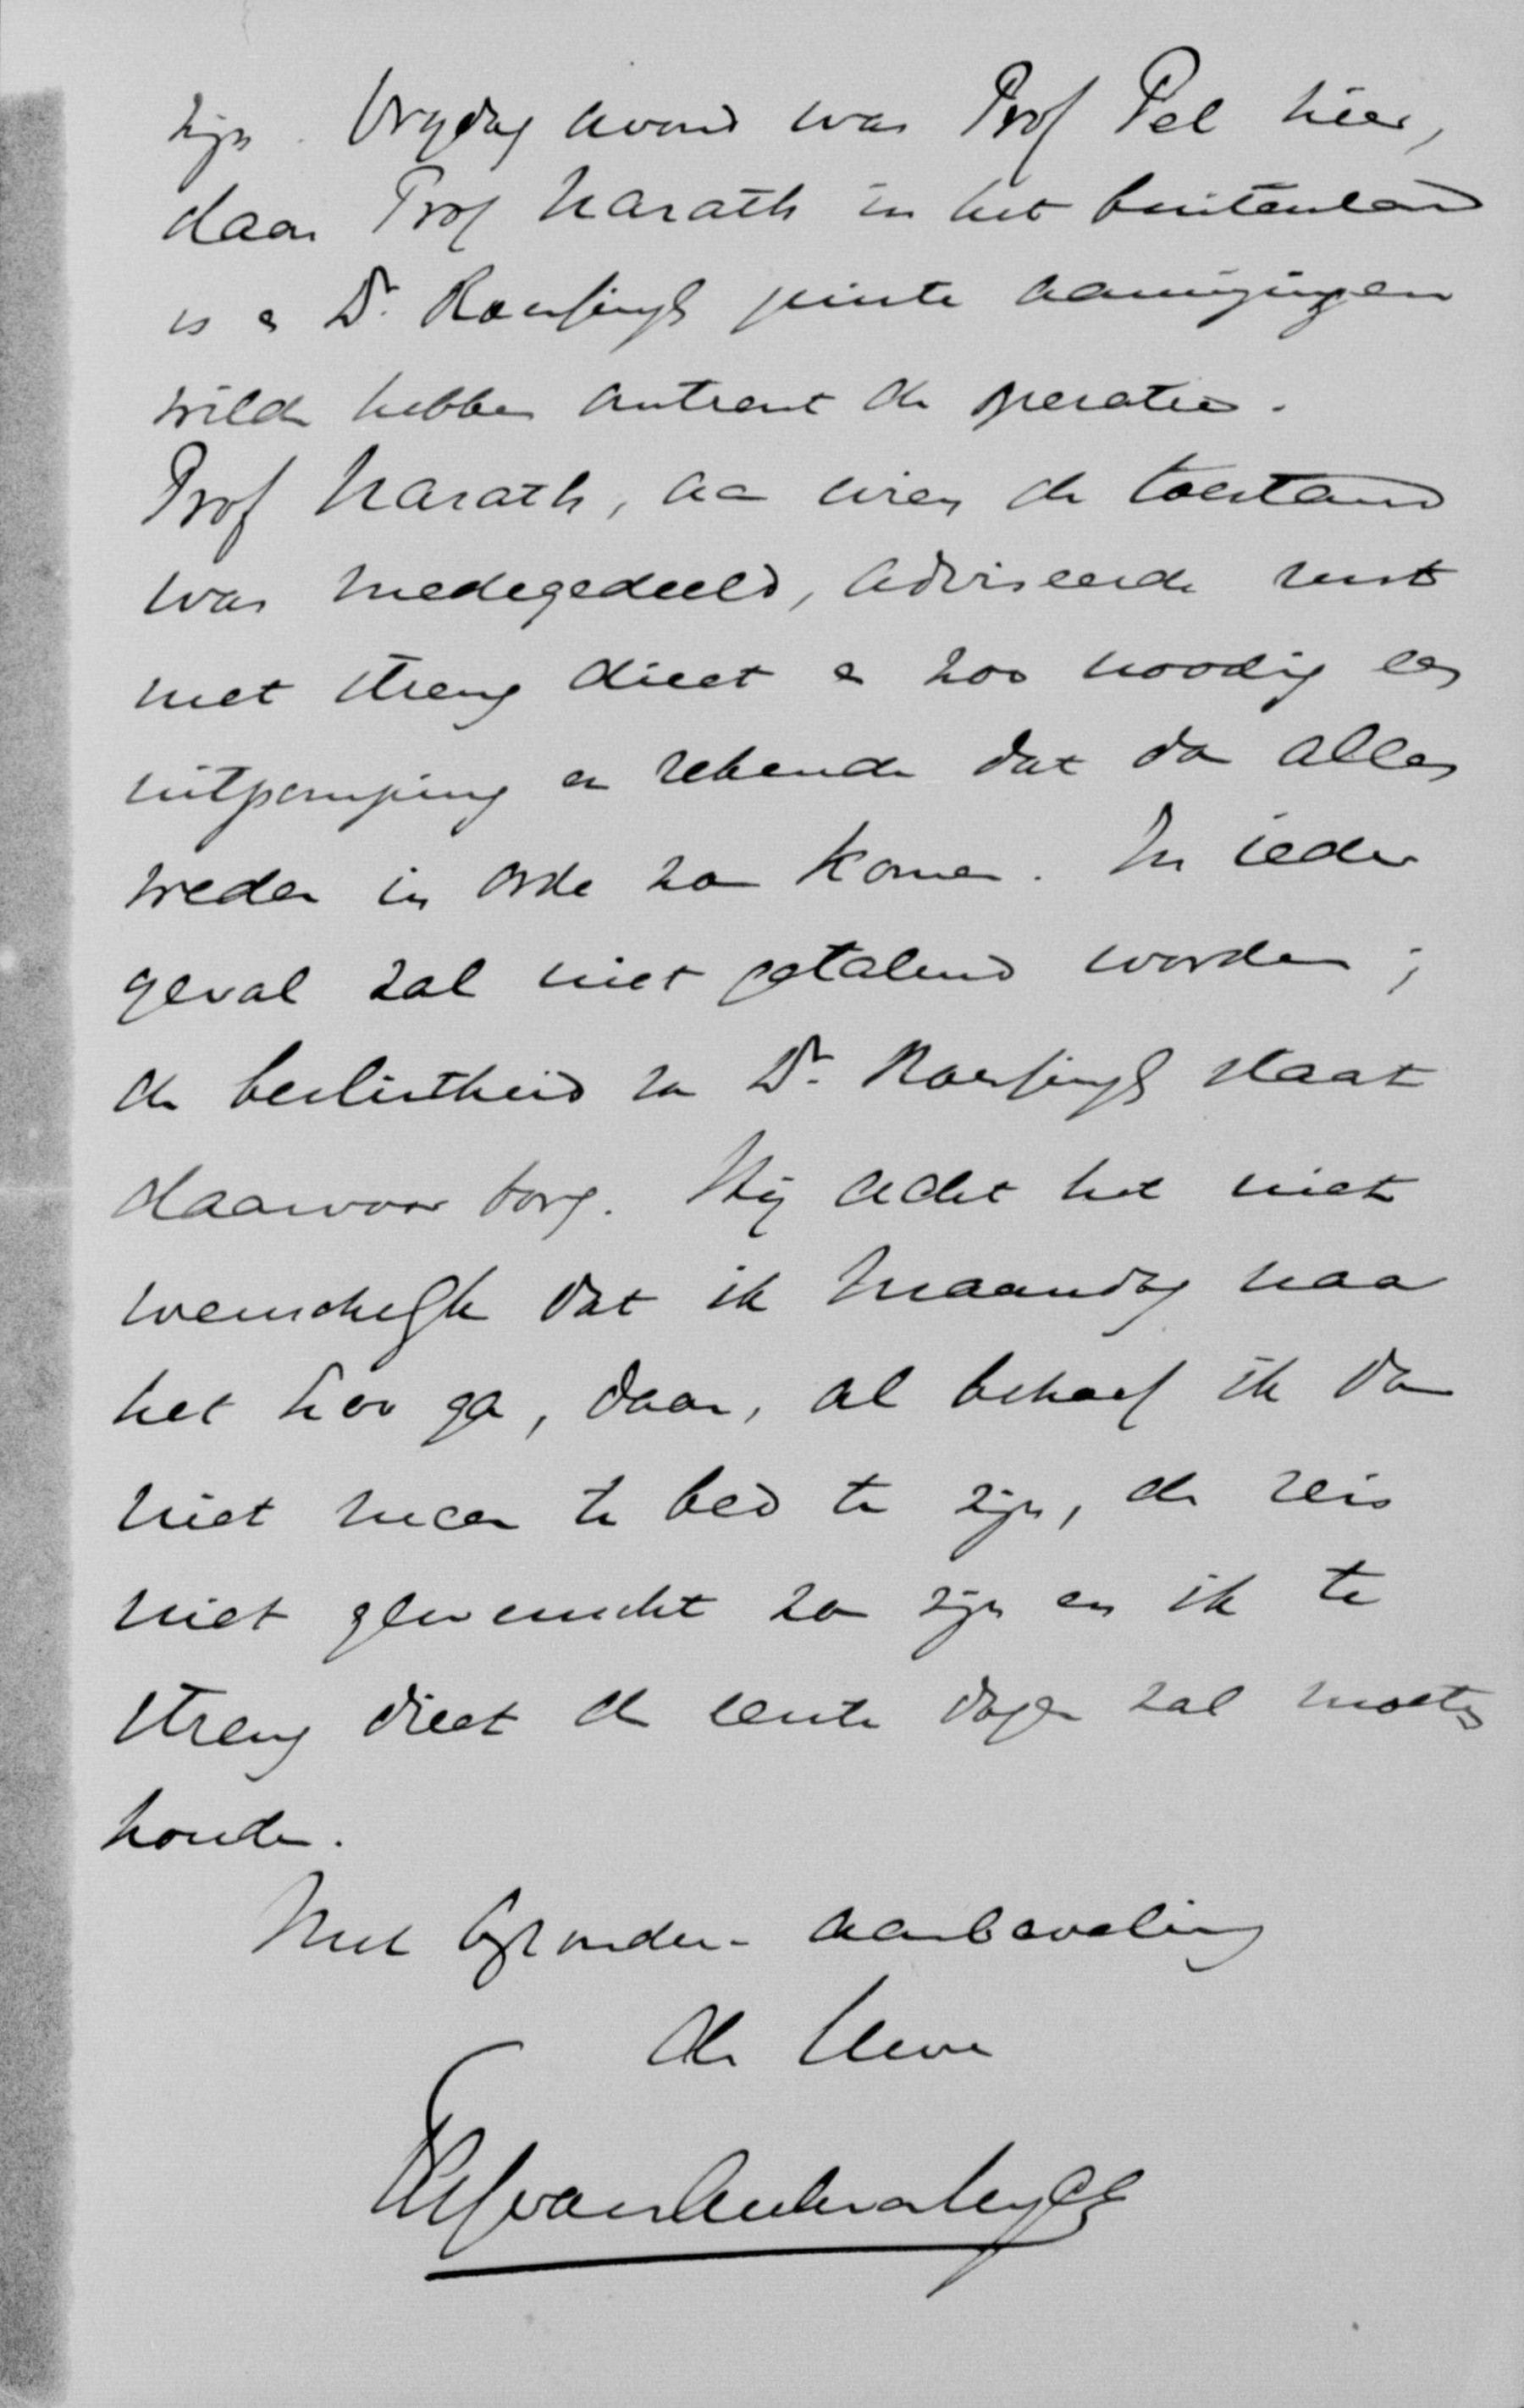 zijn. Vrijdag avond was Prof Pel hier,
daar Prof Narath in het buitenland
is en Dr. Roessingh juiste aanwijzingen
wilde hebben omtrent de operatie.
Prof Narath, aan wien de toestand
was medegedeeld, adviseerde rust
met streng dieet en zoo noodig een
uitpomping en rekende dat dan alles
weder in orde zou komen. In ieder
geval zal niet getalmd worden;
de beslistheid van Dr. Roessingh staat
daarvoor borg. Hij acht het niet
wenschelijk dat ik Maandag naar
het Loo ga, daar, al behoef ik dan
niet meer te bed te zijn, de reis
niet gewenscht zou zijn en ik te
streng dieet de eerste dagen zal moeten
houden.
Met bijzondere aanbeveling
de Uwe